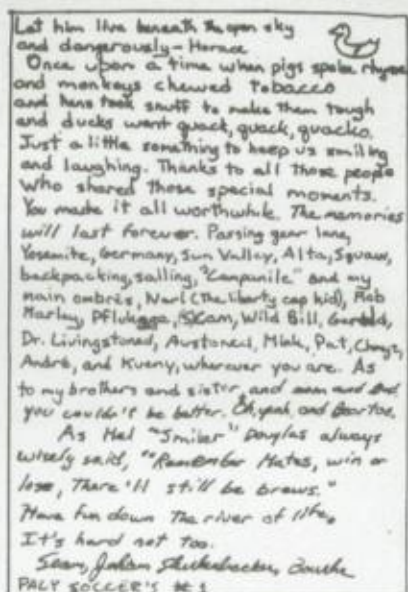 Let him live beneath the open sky
and dangerously - Horace
Once upon a time when pigs spoke rhyme
and monkeys chewed tobacco
and hens took snuff to make them tough
and ducks went quack, quack, quacko.
Just a little something to keep us smiling
and laughing. Thanks to all those people
who shared those special moments.
You made it all worthwhile. The memories
will last forever. Passing gear lane,
Yosemite, Germany, Sun Valley, Alta, Squaw,
backpacking, sailing, "Campanile" and my
main ombrés, Narl (The liberty cap kid), Rob
Marley, Wild Bill,
Dr. Livingstoned, Pat,
André, and wherever you are. As
to my brothers and sister, and mom and
you couldn't be better. Oh, yeah, and
As Mel "Smiler" Douglas always
wisely said, "Remember Mates, win or
lose, There'll still be brews."
Have fun down the river of life,
It's hard not to.
Sean,
PALY SOCCER'S #1